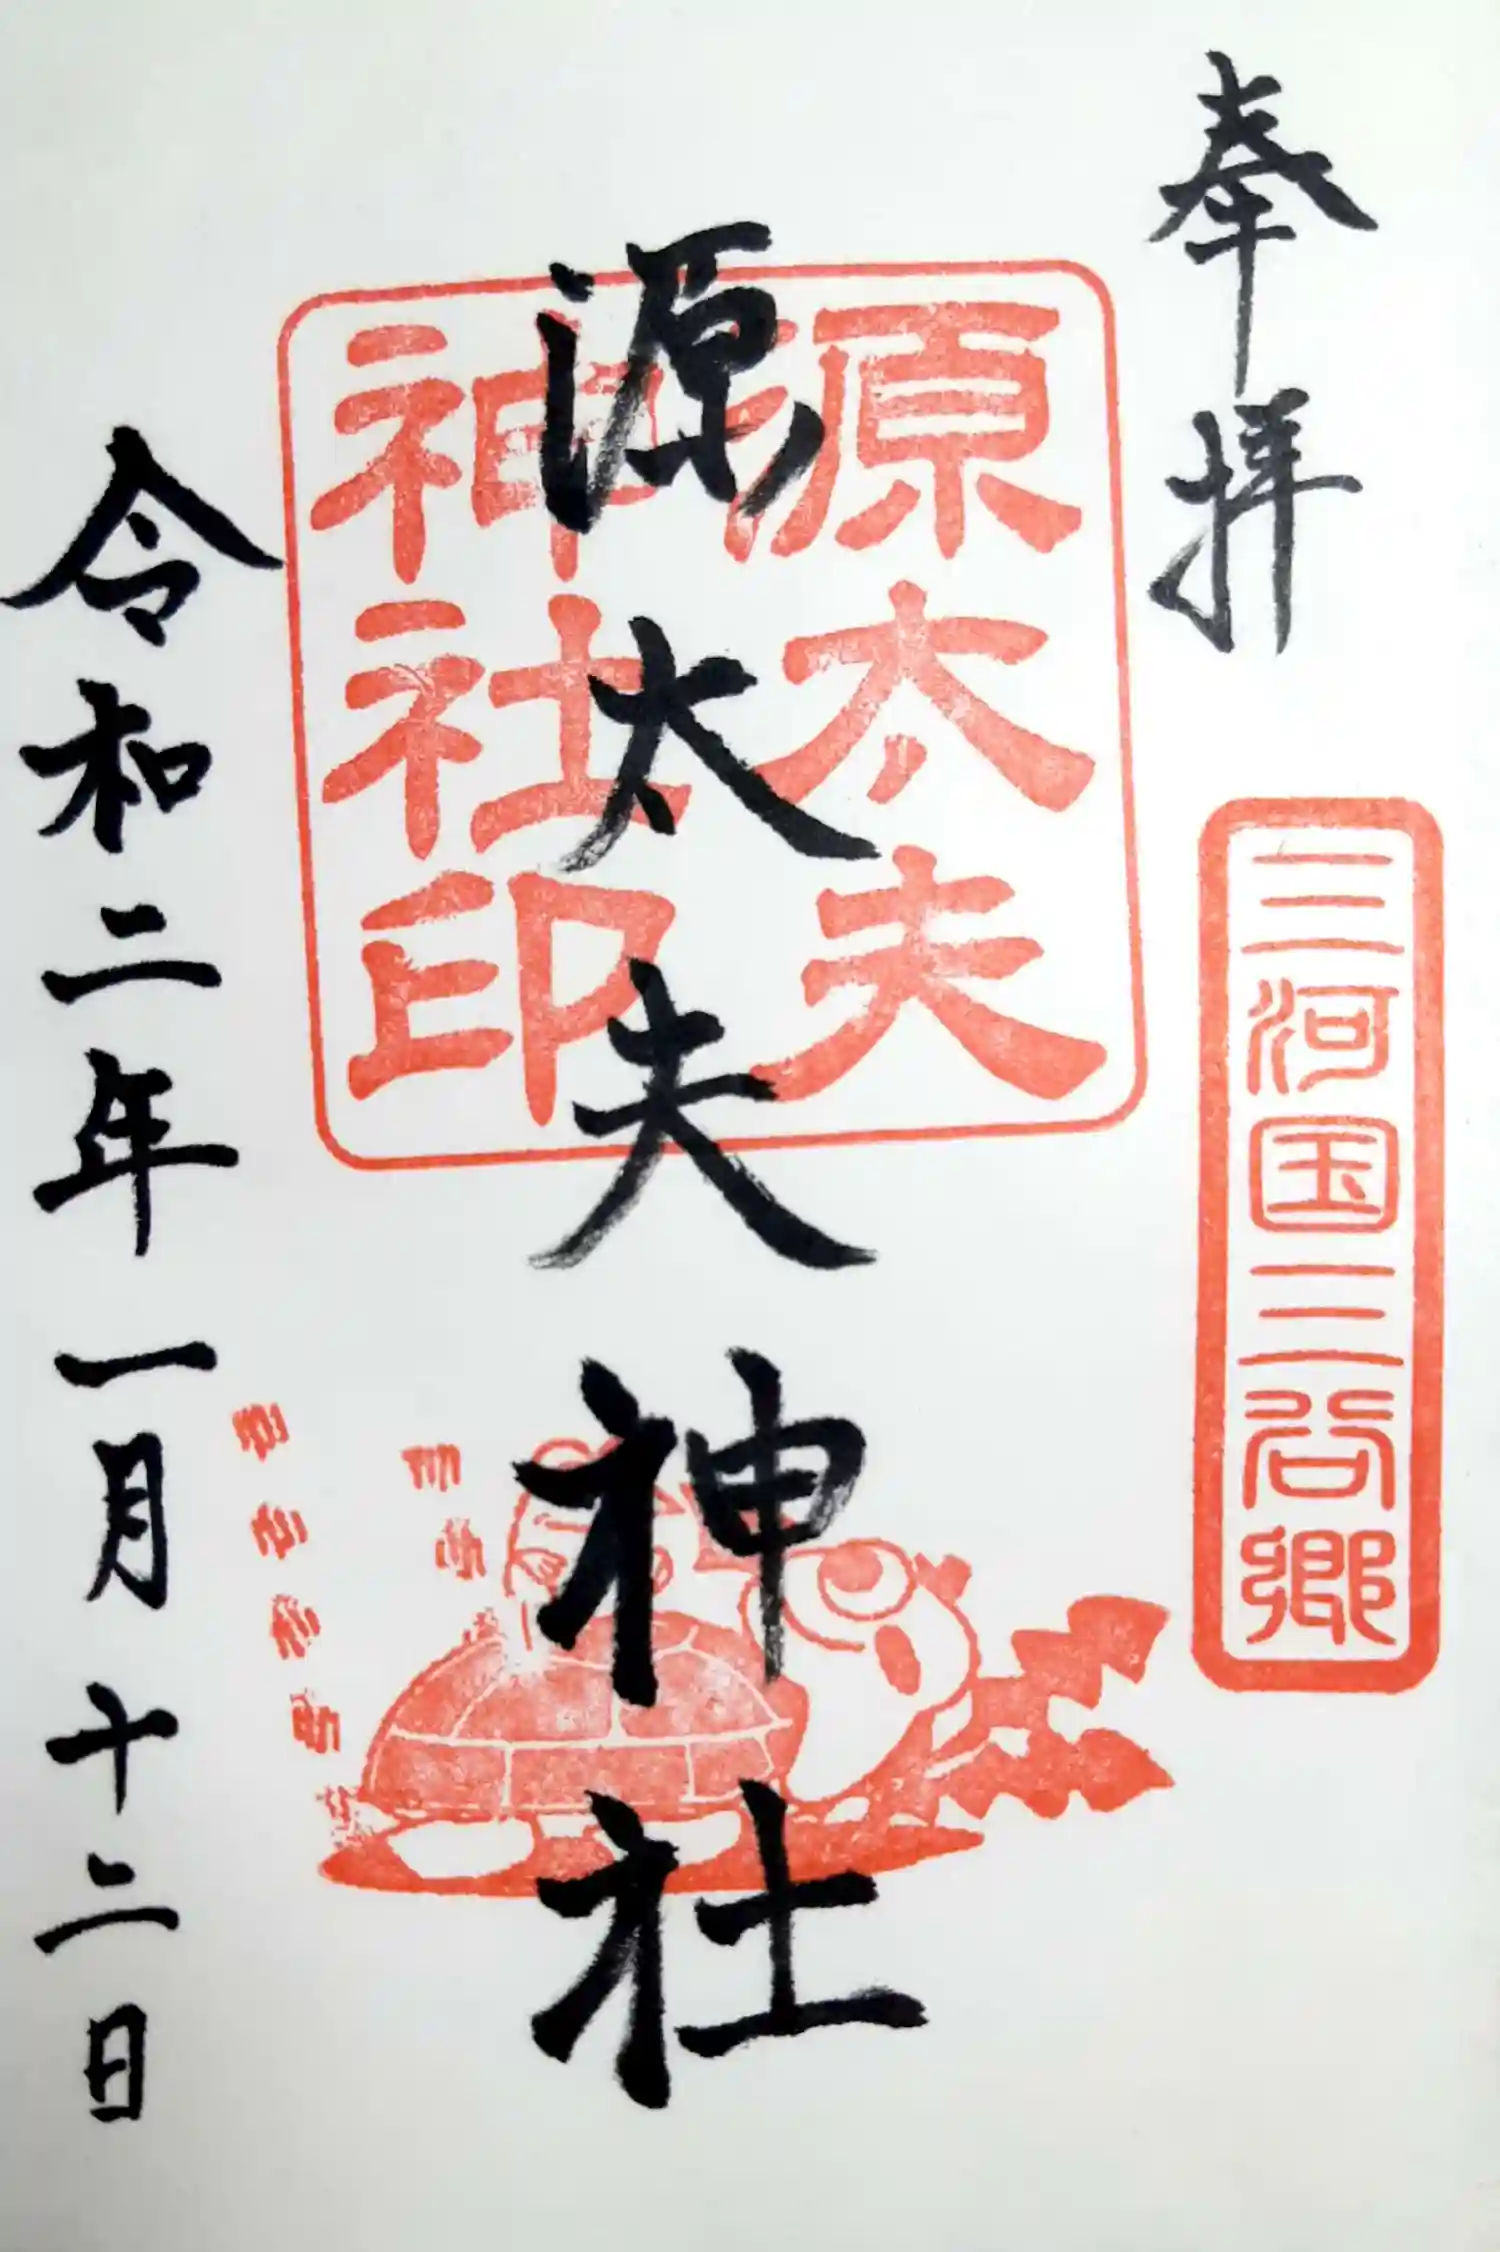 奉拝
三河国三谷郷
源太夫
神社印
源太夫神社
令和二年一月十二日